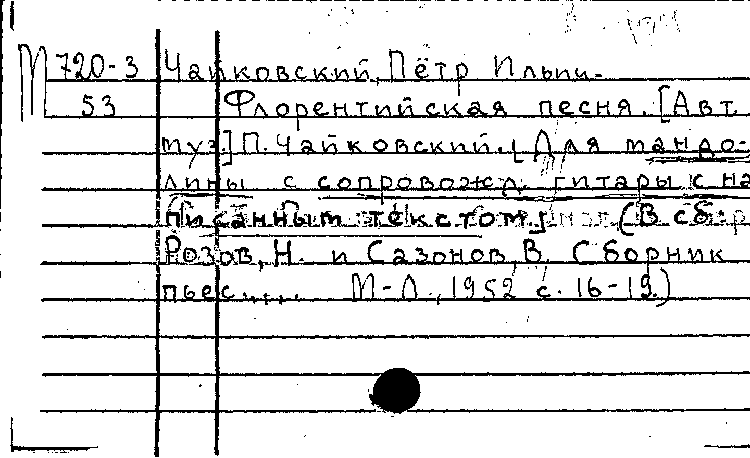 М 720-3 Чайковский, Пётр Ильич.
53 Флорентийская песня. [Авт.
муз.] П. Чайковский. [Для мандо-
лины с сопровожд. гитары с на
писанным текстом] (В сб:
Розов, Н. и Сазонов, В. Сборник
пьес.... М-Л., 1952 с. 16-19.)